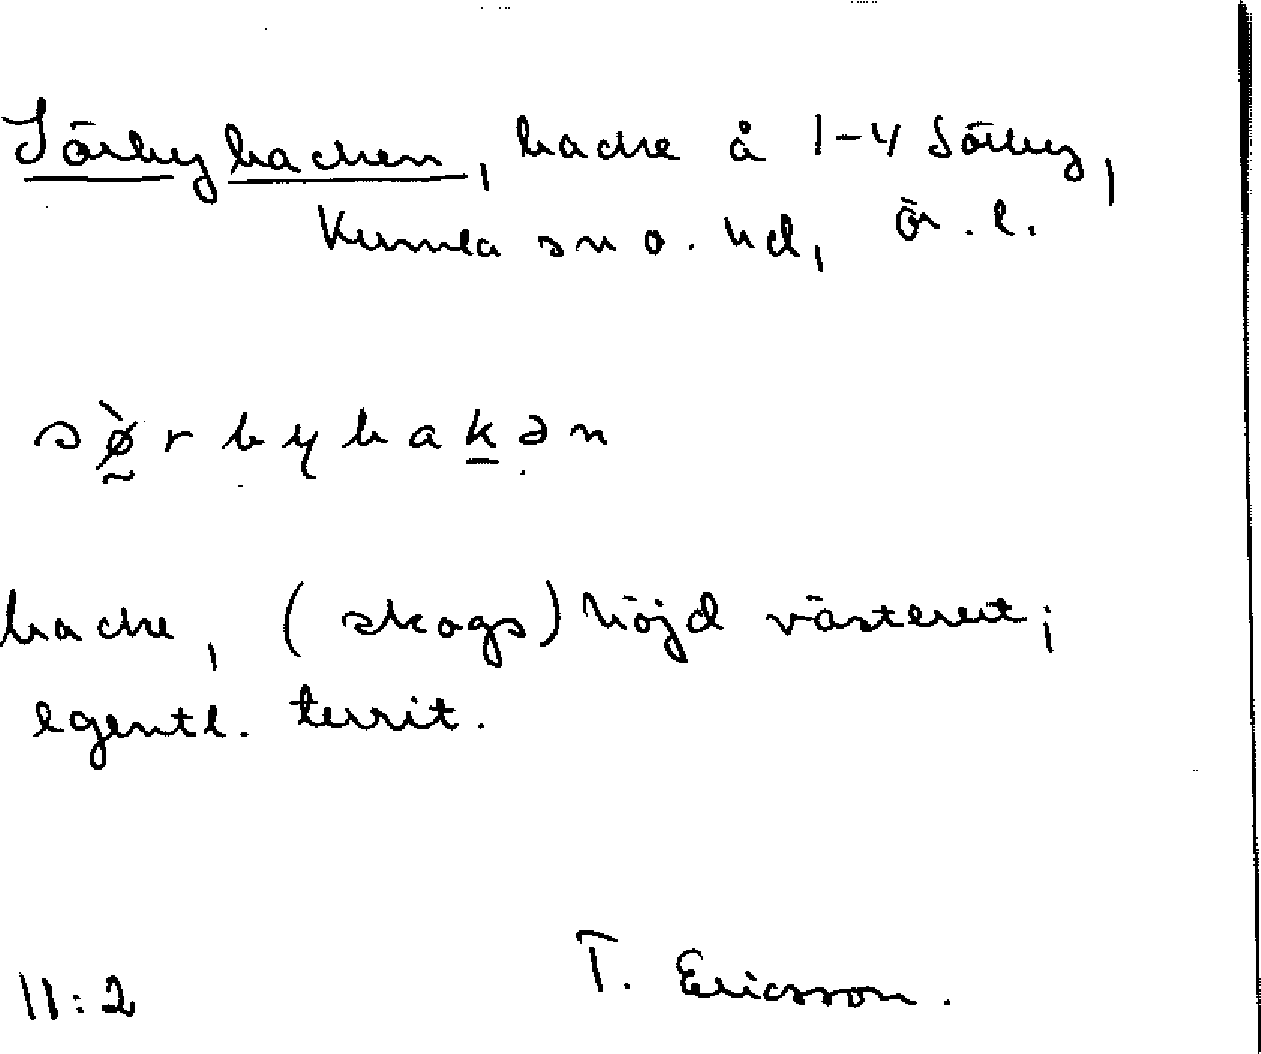 Sörbybacken, backe å 1-4 Sörby,
Kumla sn o. hd, Ör. l.
sø̀rbybakən
backe, (skogs)höjd västerut;
egentl. territ.
11:2 T. Ericsson.